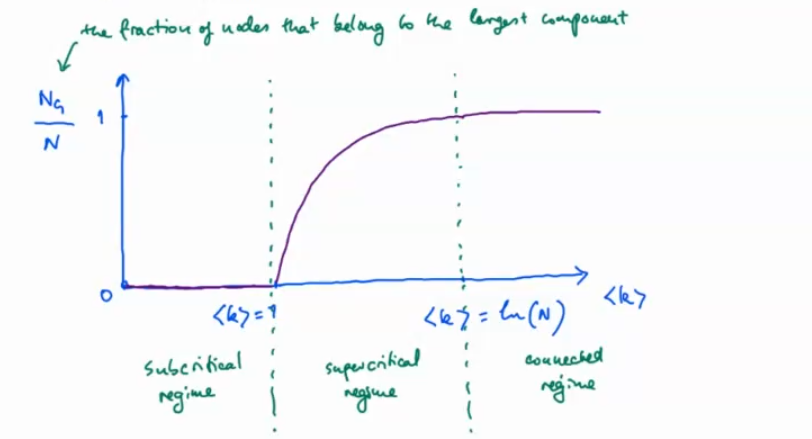 the fraction of nodes that belong to the largest component
NG
N
1
0
<k> = 1
<k> = ln(N)
<k>
subcritical
regime
supercritical
regime
connected
regime